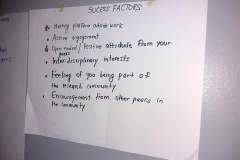 SUCESS FACTORS
• Meeting platform outside work
• Active engagement
• Open minded / Positive attitude from your
peers
• Interdisciplinary interests
• Feeling of you being part of
the research community
• Encouragement from other peers in
the community